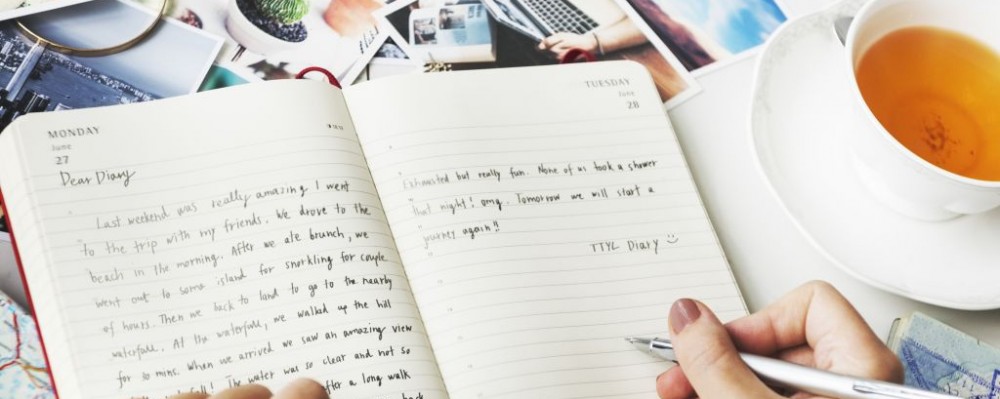 MONDAY
June
27
Dear Diary
Last weekend was really amazing I went
to the trip with my friends. We drove to the
beach in the morning. After we ate brunch, we
went out to some island for snorkling for couple
of hours. Then we back to land to go to the nearby
waterfall. At the waterfall, we walked up the hill
for 30 mins. When we arrived we saw an amazing view
The water was so clear and not so
after a long walk
TUESDAY
June
28
Exhausted but really fun. None of us took a shower
that night! omg. Tomorrow we will start a
journey again!!
TTYL Diary